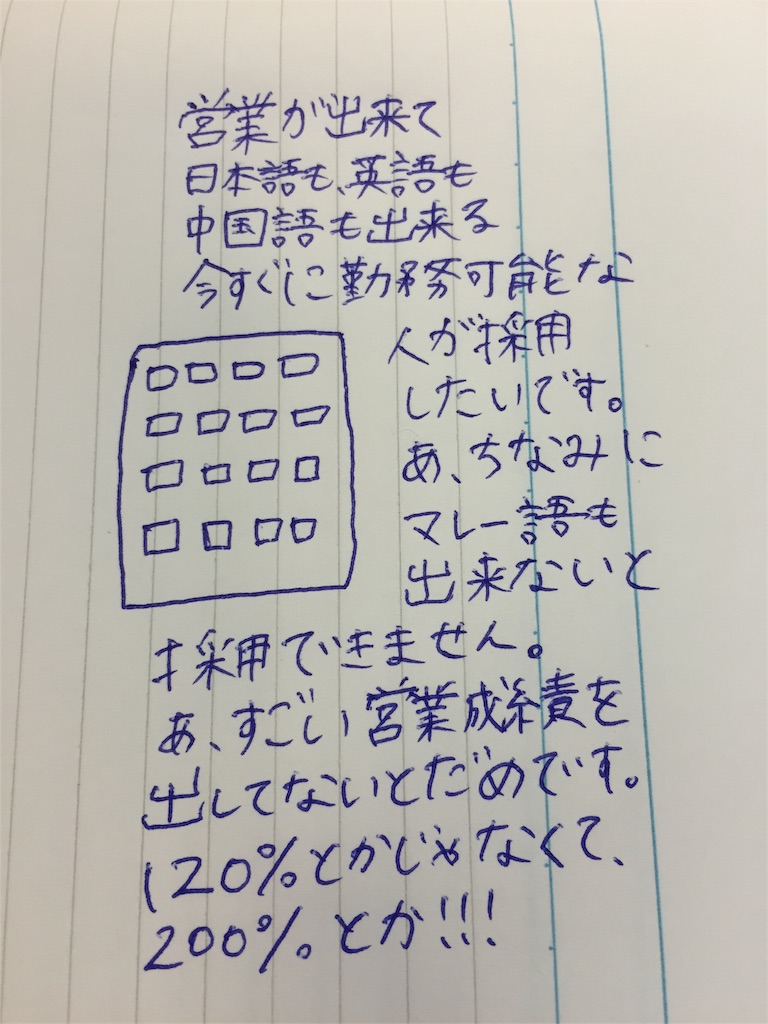 営業が出来て
日本語も、英語も
中国語も出来る
今すぐに勤務可能な
人が採用
したいです。
あ、ちなみに
マレー語も
出来ないと
採用できません。
あ、すごい営業成績を
出してないとだめです。
120%とかじゃなくて、
200%とか!!!